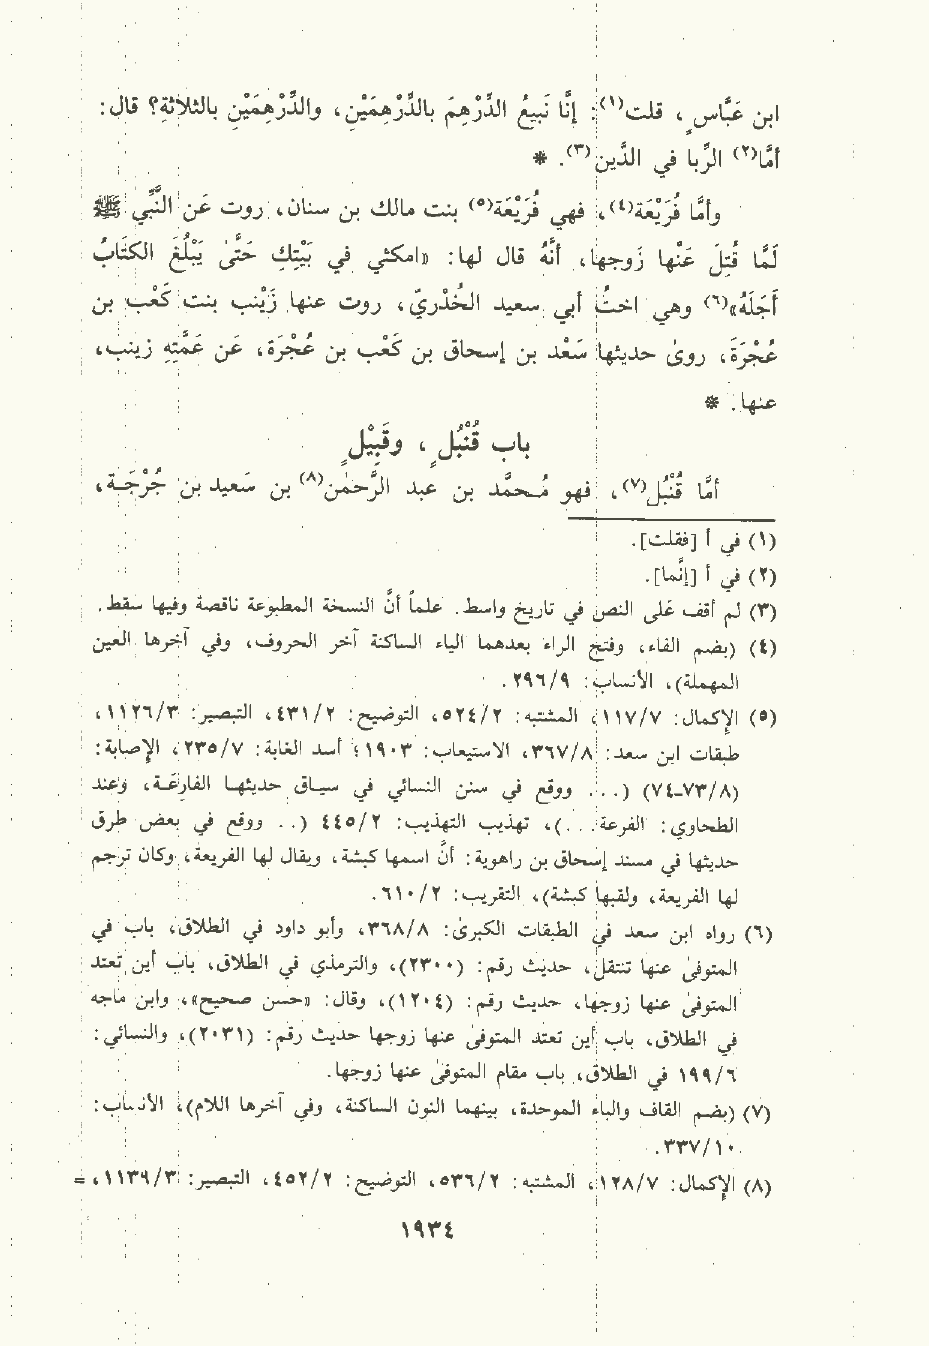 ابن عَبَّاسٍ، قلت(١): إنَّا نَبيعُ الدِّرْهِمَ بالدِّرْهِمَيْنِ، والدِّرْهِمَيْنِ بالثلاثةِ؟ قال:
أمَّا(٢) الرِّبا في الدَّين(٣). *
وأمَّا فُرَيْعَة(٤)، فهي فُرَيْعَة(٥) بنت مالك بن سنان، روت عَن النَّبِّي ﷺ
لَمَّا قُتِلَ عَنْها زَوجها، أنَّهُ قال لها: «امكثي في بَيْتِكِ حَتَّىٰ يَبْلُغَ الكتَابُ
أَجَلَهُ»(٦) وهي اختُ أبي سعيد الخُدْريّ، روت عنها زَيْنب بنت كَعْب بن
عُجْرَةَ، روىٰ حديثها سَعْد بن إسحاق بن كَعْب بن عُجْرَة، عَن عَمَّتِهِ زينب،
عنها. *
باب قُنْبُلٍ، وقَبِيْلٍ
أمَّا قُنْبُل(٧)، فهو مُـحمَّد بن عبد الرَّحمٰن(٨) بن سَعيد بن جُرْجَـة،
(١) في أ [فقلت].
(٢) في أ [إنَّما].
(٣) لم أقف عَلى النص في تاريخ واسط. علماً أنَّ النسخة المطبوعة ناقصة وفيها سقط.
(٤) (بضم الفاء، وفتح الراء بعدهما الياء الساكنة آخر الحروف، وفي آخرها العين
المهملة)، الأنساب: ٢٩٦/٩.
(٥) الإكمال: ١١٧/٧، المشتبه: ٥٢٤/٢، التوضيح: ٤٣١/٢، التبصير: ١١٢٦/٣،
طبقات ابن سعد: ٣٦٧/٨، الاستيعاب: ١٩٠٣؛ أسد الغابة: ٢٣٥/٧، الإصابة:
(٧٣/٨-٧٤) (... ووقع في سنن النسائي في سيـاق حديثهـا الفارعَـة، وعند
الطحاوي: الفرعة...)، تهذيب التهذيب: ٤٤٥/٢ (.. ووقع في بعض طرق
حديثها في مسند إسحاق بن راهوية: أنَّ اسمها كبشة، ويقال لها الفريعة، وكان ترجم
لها الفريعة، ولقبها كبشة)، التقريب: ٦١٠/٢.
(٦) رواه ابن سعد في الطبقات الكبرىٰ: ٣٦٨/٨، وأبو داود في الطلاق، باب في
المتوفىٰ عنها تنتقل، حديث رقم: (٢٣٠٠)، والترمذي في الطلاق، باب أين تعتد
المتوفىٰ عنها زوجها، حديث رقم: (١٢٠٤)، وقال: «حسن صحيح»، وابن ماجه
في الطلاق، باب أين تعتد المتوفىٰ عنها زوجها حديث رقم: (٢٠٣١)، والنسائي:
١٩٩/٦ في الطلاق، باب مقام المتوفىٰ عنها زوجها.
(٧) (بضم القاف والباء الموحدة، بينهما النون الساكنة، وفي آخرها اللام)، الأنساب:
٣٣٧/١٠.
(٨) الإكمال: ١٢٨/٧، المشتبه: ٥٣٦/٢، التوضيح: ٤٥٢/٢، التبصير: ١١٣٩/٣، =
١٩٣٤